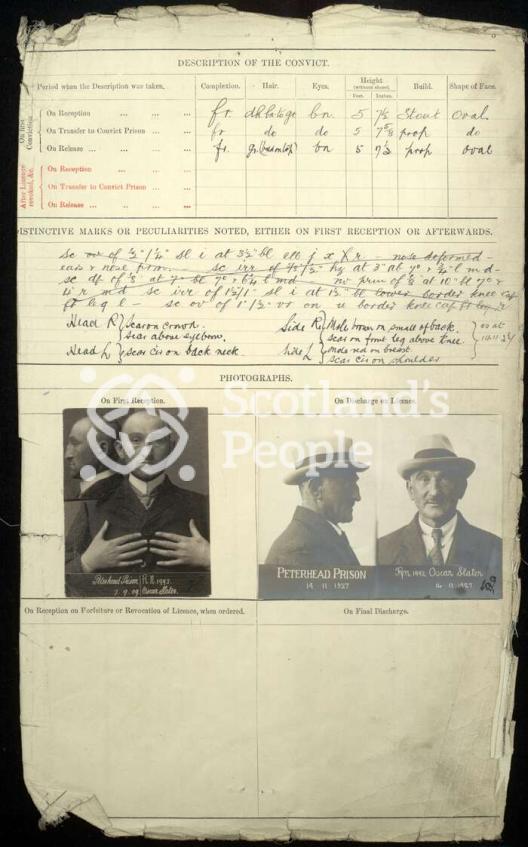 DESCRIPTION OF THE CONVICT.
Period when the Description was taken. Complexion. Hair. Eyes. Height (without shoes). Feet. Inches. Build. Shape of Face.
On first Conviction
On Reception ... ... ... fr. bn 5 7½ Stout Oval.
On Transfer to Convict Prison ... ... fr do do 5 7⅝ prop do
On Release ... ... ... fr. bn 5 7½ prop oval
After Licence revoked, &c.
On Reception ... ... ...
On Transfer to Convict Prison ... ...
On Release ... ... ...
DISTINCTIVE MARKS OR PECULIARITIES NOTED, EITHER ON FIRST RECEPTION OR AFTERWARDS.
sc ov of sl i at 3½" bl r - nose deformed -
sc irr of at 3" at 7" m d -
sc at 7" bl m d at 10" bl 7"
r m d sc irr of sl i at bl lower border knee cap
leg l - sc ov of 1" on u border knee cap
Head R } Scar on crown.
Scar above eyebrow.
Head L } scar cis on back neck.
Side R } Mole brown on small of back.
scar on front leg above knee.
Side L } Mole red on breast.
scar cis on shoulder
PHOTOGRAPHS.
On First Reception. On Discharge on Licence.
Scotland's
People
Peterhead Prison 1992.
7. 9. 09 Oscar Slater.
PETERHEAD PRISON
14 11 1927
1992 Oscar Slater
14. 11. 1927
On Reception on Forfeiture or Revocation of Licence, when ordered. On Final Discharge.